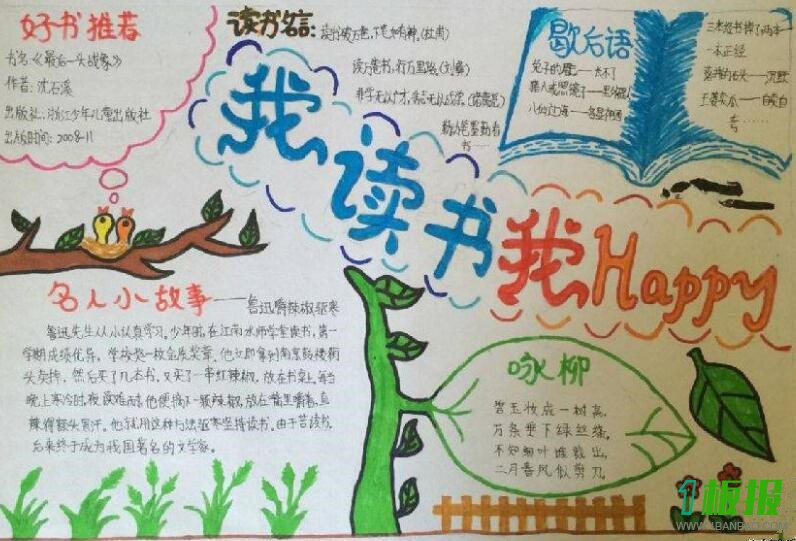 好书推荐
书名：《最后一头战象》
作者：沈石溪
出版社：浙江少年儿童出版社
出版时间：2008-11
读书名言：读书破万卷，下笔如有神。(杜甫)
读万卷书，行万里路
非学无以广才，
歇后语
八仙过海——各显神通
王婆卖瓜——自卖自夸
我读书我Happy
名人小故事——鲁迅嚼辣椒驱寒
鲁迅先生从小认真学习。少年时，在江南水师学堂读书，第一
学期成绩优异，学校奖一枚金质奖章。他立即拿到南京鼓楼街
头卖掉，然后买了几本书，又买了一串红辣椒，放在书桌上，每当
晚上寒冷时，夜读难耐，他便摘下一颗辣椒，放在嘴里嚼着，直
辣得额头冒汗。他就用这种办法驱寒坚持读书。由于苦读书，
后来终于成为我国著名的文学家。
咏柳
碧玉妆成一树高，
万条垂下绿丝绦。
不知细叶谁裁出，
二月春风似剪刀。
板报
WWW.1BANBAO.COM